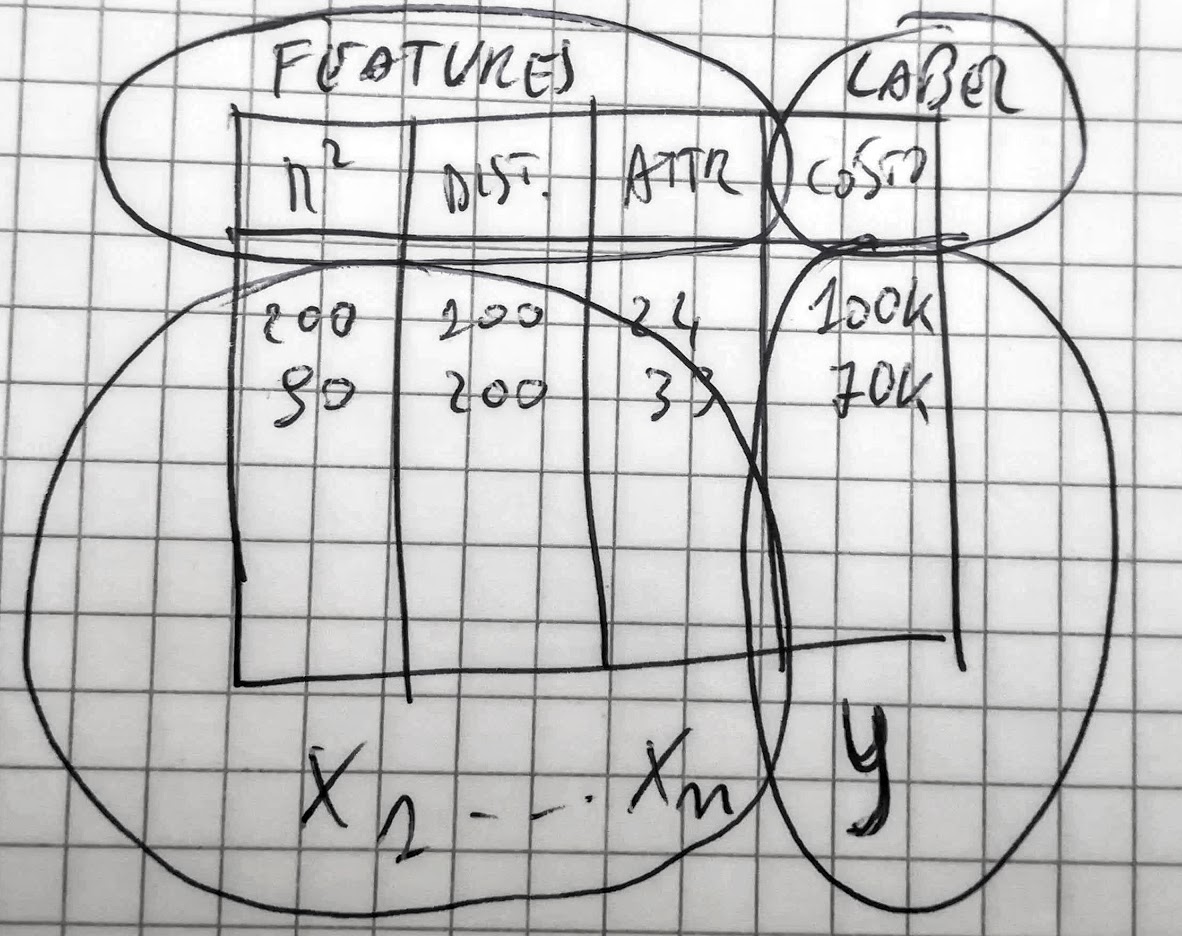 FEATURES LABEL
m² DIST. ATTR COSTO
200 100 24 100K
90 200 33 70K
X1 --- Xm y